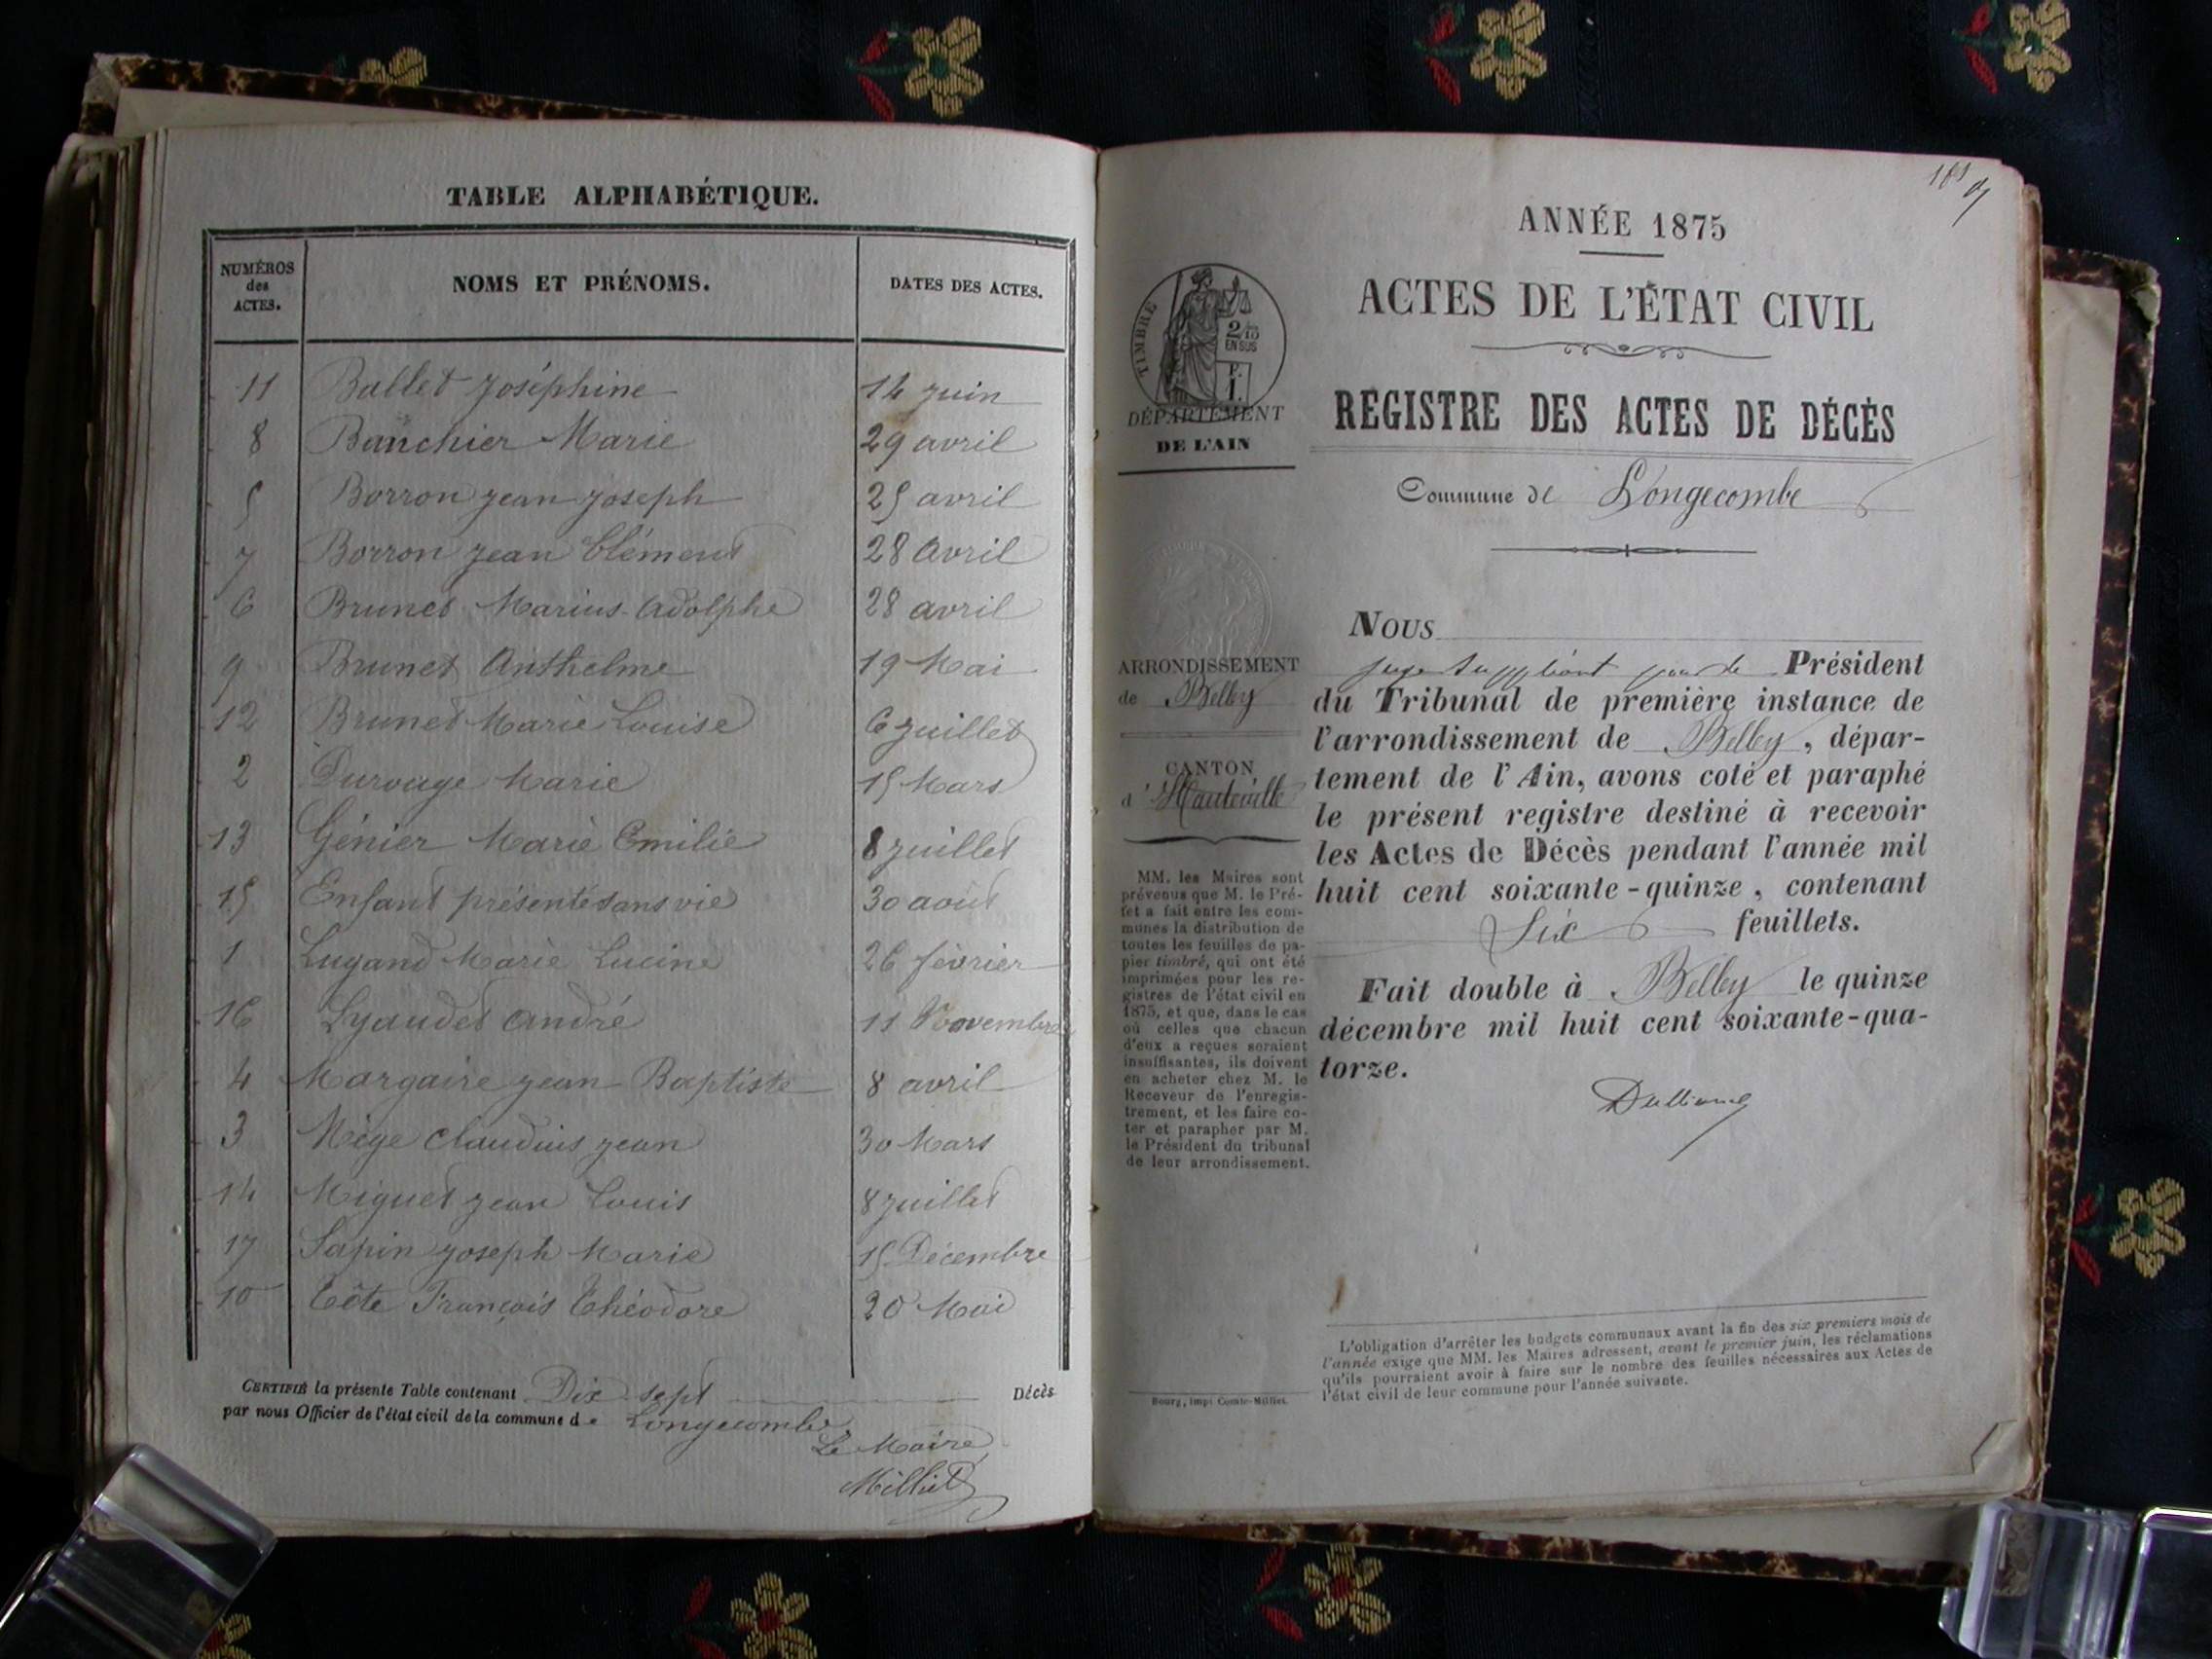 TABLE ALPHABÉTIQUE.
NUMÉROS des ACTES. NOMS ET PRÉNOMS. DATES DES ACTES.
11 Ballet joséphine 14 juin
8 Banchier Marie 29 avril
5 Borron jean joseph 25 avril
7 Borron jean Clément 28 avril
6 Brunet Marius Adolphe 28 avril
9 Brunet Anthelme 19 Mai
12 Brunet Marie Louise 6 juillet
2 Durouge Marie 15 Mars
13 Génier Marie Emilie 8 juillet
15 Enfant présenté sans vie 30 août
1 Lugand Marie Lucine 26 février
16 Lyaudet André 11 Novembre
4 Margaire jean Baptiste 8 avril
3 Mège Claudius jean 30 Mars
14 Miguet jean Louis 8 juillet
17 Sapin joseph Marie 15 Décembre
10 Tête François Théodore 20 Mai
CERTIFIÉ la présente Table contenant Dix sept Décès
par nous Officier de l'état civil de la commune de Longecombe
Le Maire
Milliet
181
ANNÉE 1875
ACTES DE L'ÉTAT CIVIL
REGISTRE DES ACTES DE DÉCÈS
Commune de Longecombe
TIMBRE
2/10
EN SUS
P.
1.
DÉPARTEMENT
DE L'AIN
ARRONDISSEMENT
de Belley
CANTON
d'Hauteville
MM. les Maires sont
prévenus que M. le Pré-
fet a fait entre les com-
munes la distribution de
toutes les feuilles de pa-
pier timbré, qui ont été
imprimées pour les re-
gistres de l'état civil en
1875, et que, dans le cas
où celles que chacun
d'eux a reçues seraient
insuffisantes, ils doivent
en acheter chez M. le
Receveur de l'enregis-
trement, et les faire co-
ter et parapher par M.
le Président du tribunal
de leur arrondissement.
Bourg, Imp. Comte-Milliet.
NOUS
juge suppléant pour le Président
du Tribunal de première instance de
l'arrondissement de Belley, dépar-
tement de l'Ain, avons coté et paraphé
le présent registre destiné à recevoir
les Actes de Décès pendant l'année mil
huit cent soixante-quinze, contenant
Six feuillets.
Fait double à Belley le quinze
décembre mil huit cent soixante-qua-
torze.
L'obligation d'arrêter les budgets communaux avant la fin des six premiers mois de
l'année exige que MM. les Maires adressent, avant le premier juin, les réclamations
qu'ils pourraient avoir à faire sur le nombre des feuilles nécessaires aux Actes de
l'état civil de leur commune pour l'année suivante.